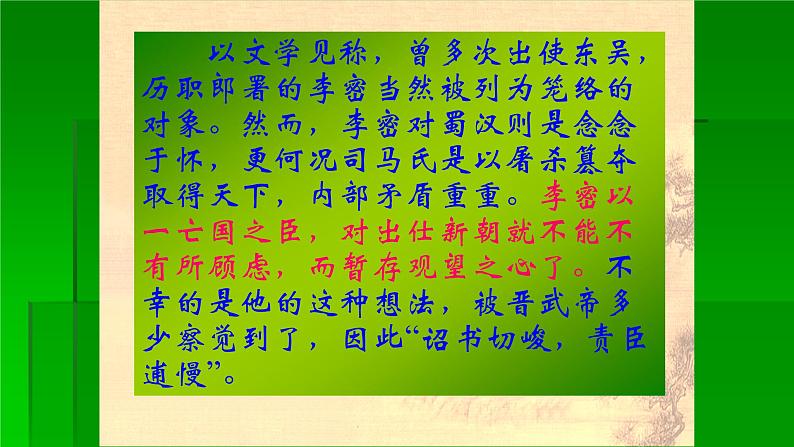 以文学见称，曾多次出使东吴，
历职郎署的李密当然被列为笼络的
对象。然而，李密对蜀汉则是念念
于怀，更何况司马氏是以屠杀篡夺
取得天下，内部矛盾重重。李密以
一亡国之臣，对出仕新朝就不能不
有所顾虑，而暂存观望之心了。不
幸的是他的这种想法，被晋武帝多
少察觉到了，因此“诏书切峻，责臣
逋慢”。